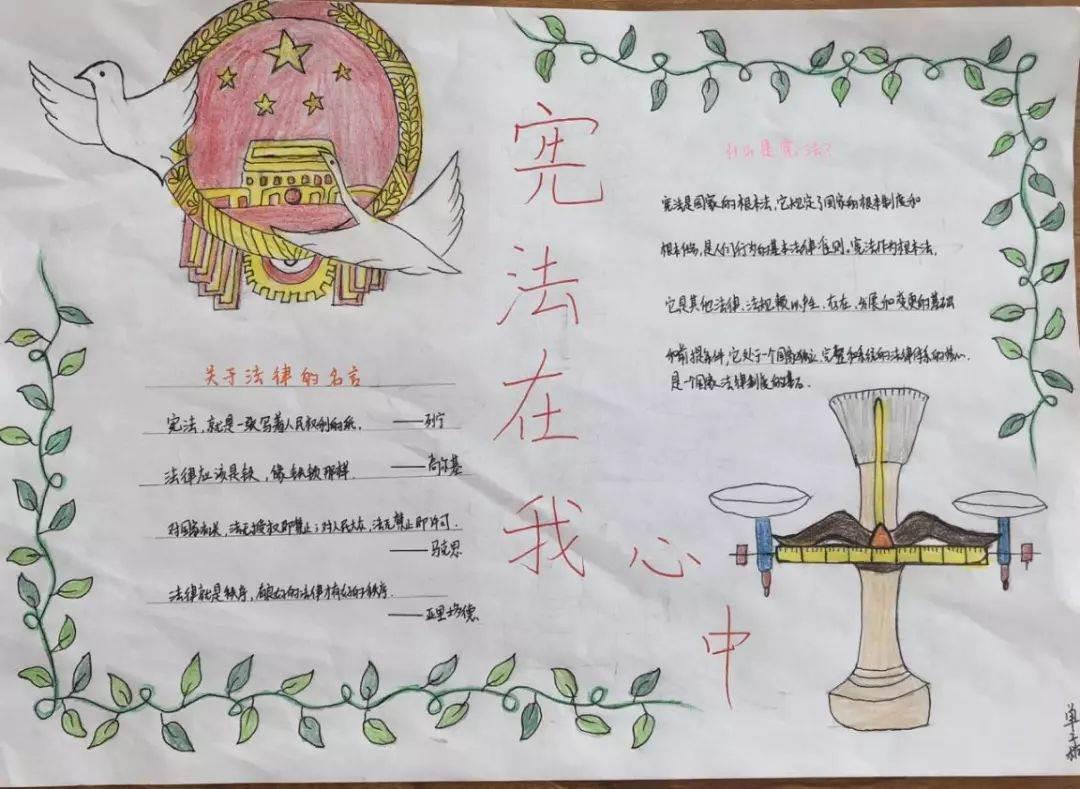 宪法在我心中
关于法律的名言
宪法，就是一张写着人民权利的纸。——列宁
法律应该是铁，像铁锁那样．——高尔基
对国家机关，法无授权即禁止；对人民大众，法无禁止即许可．
——马克思
法律就是秩序，有好的法律才有好的秩序．
——亚里斯多德
什么是宪法？
宪法是国家的根本法，它规定了国家的根本制度和
根本任务，是人们行为的基本法律准则。宪法作为根本法，
它是其他法律、法规赖以产生、存在、发展和变更的基础
和前提条件，它处于一个国家独立、完整和系统的法律体系的核心．
是一个国家法律制度的基石．